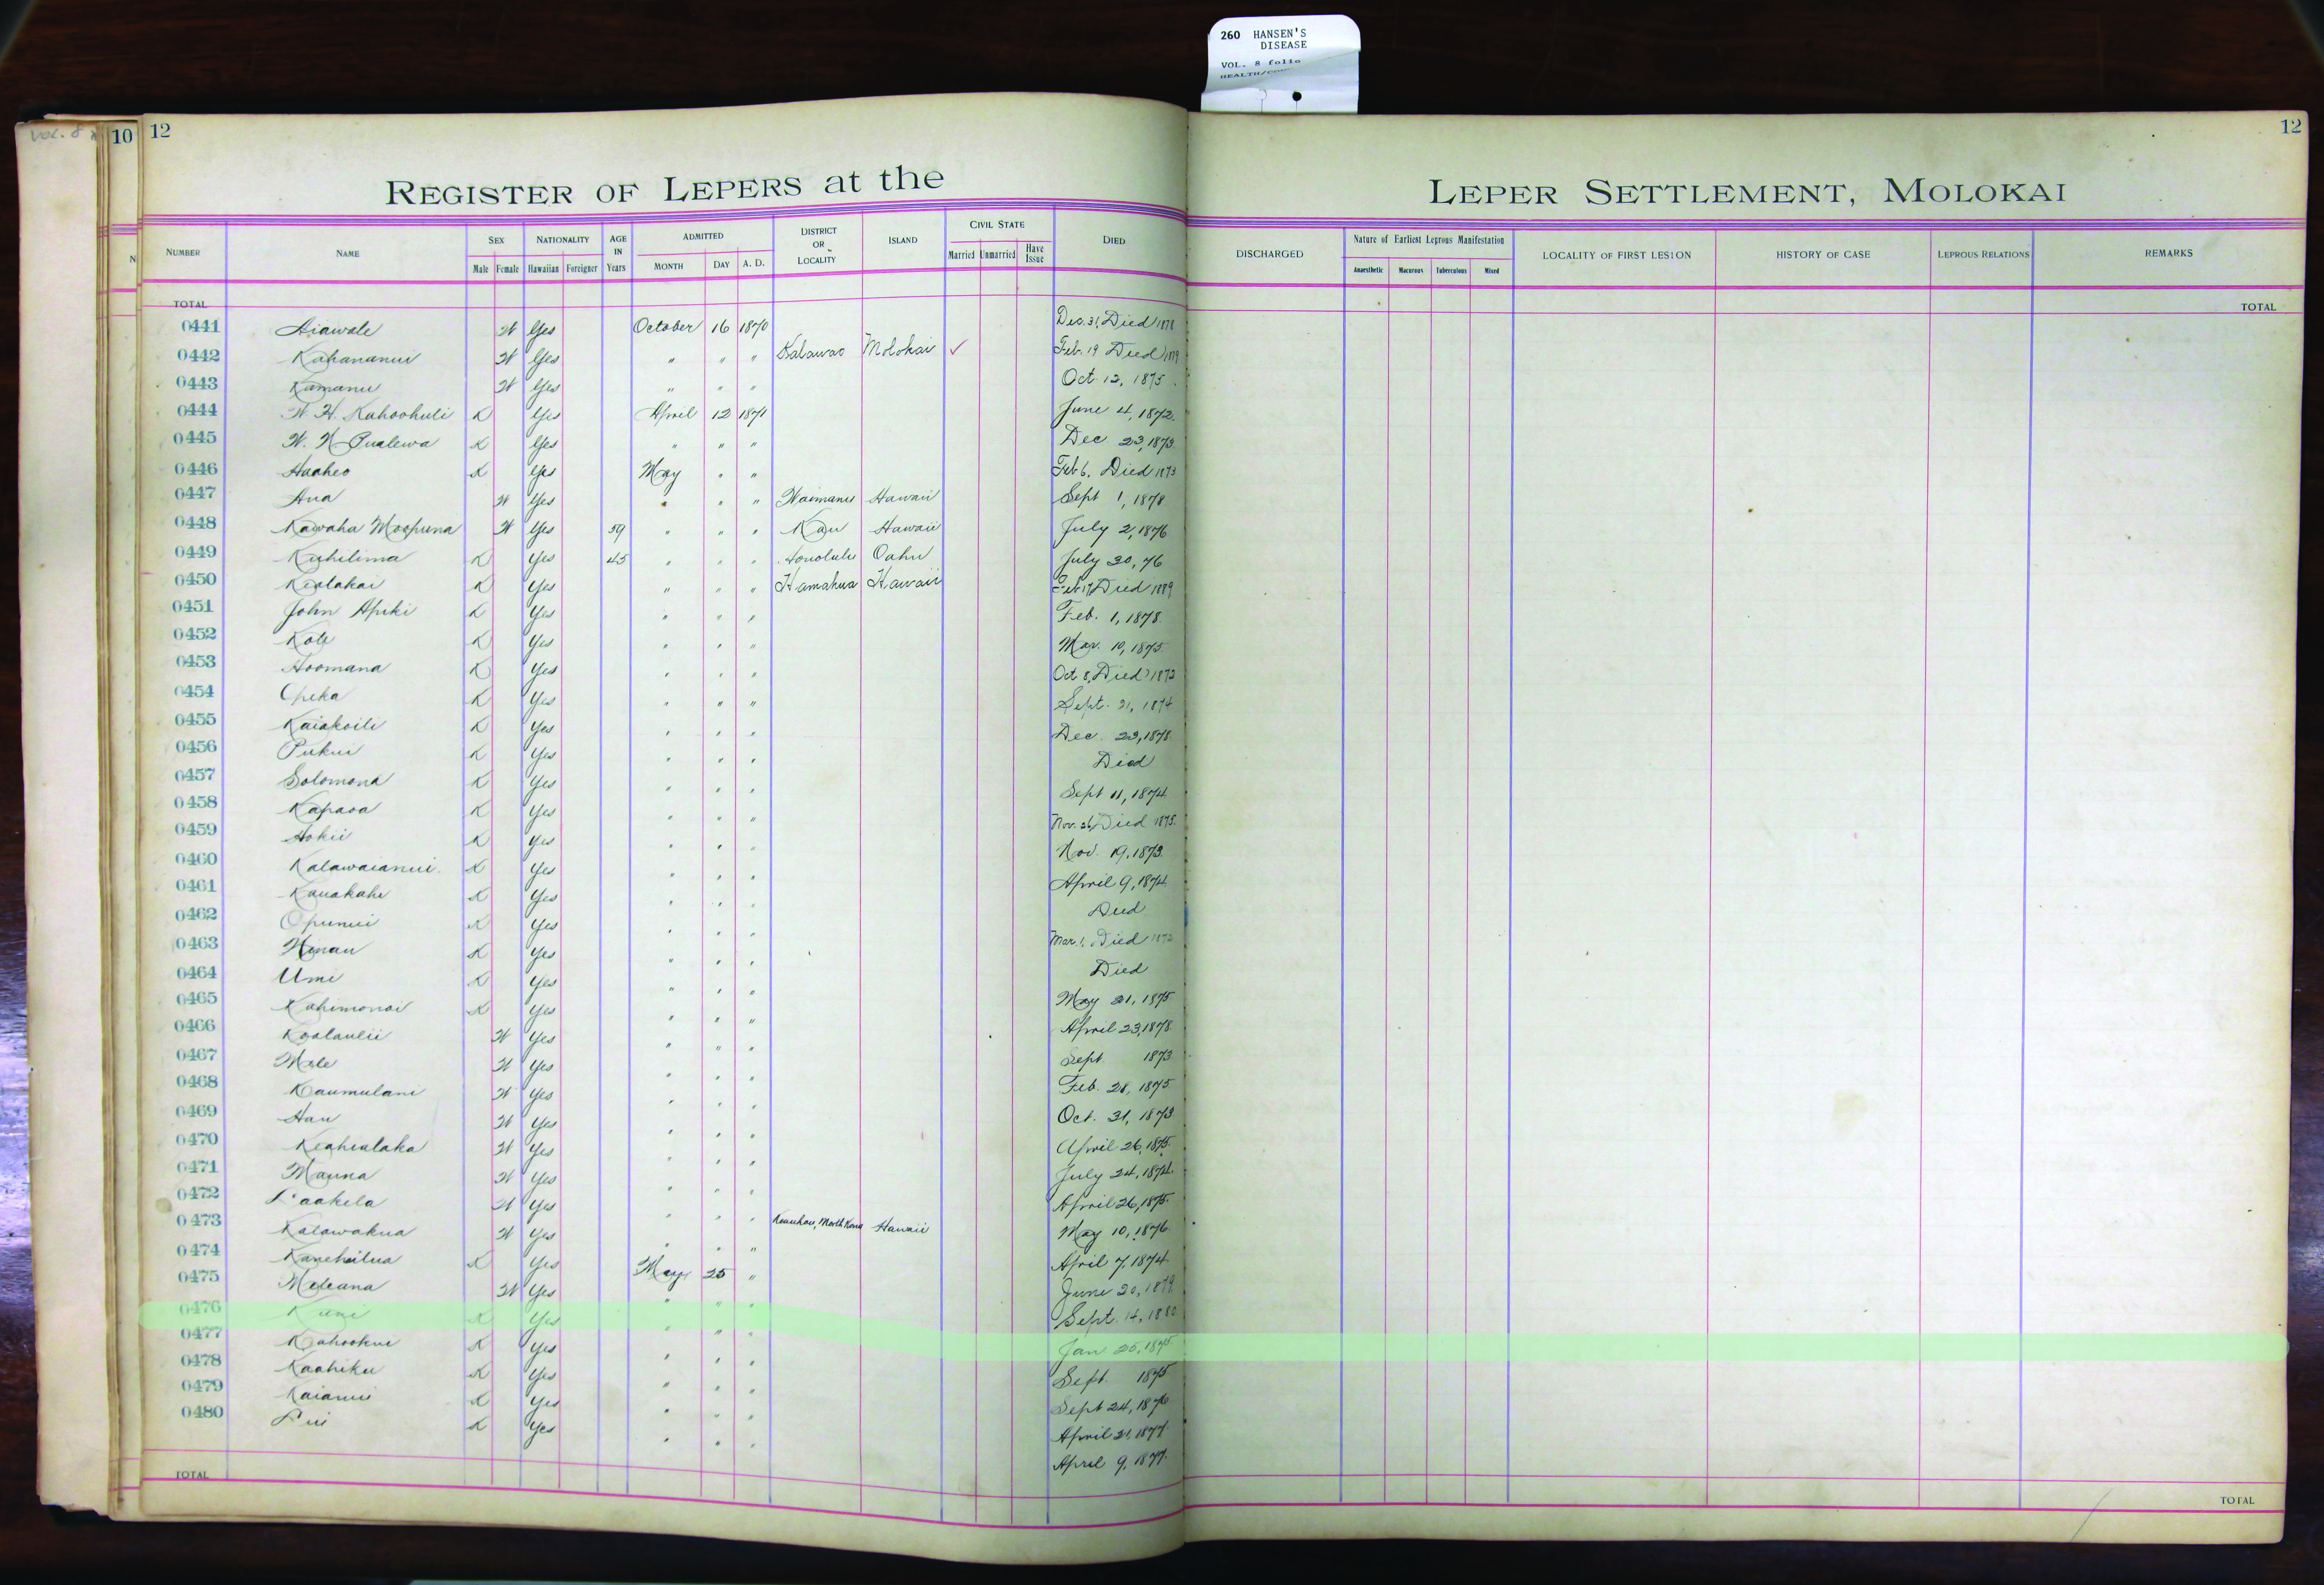 260 HANSEN'S
DISEASE
VOL. 8 folio
Vol. 8
10 12 12
REGISTER OF LEPERS at the LEPER SETTLEMENT, MOLOKAI
NUMBER NAME SEX Male Female NATIONALITY Hawaiian Foreigner AGE IN Years ADMITTED MONTH DAY A. D. DISTRICT OR LOCALITY ISLAND CIVIL STATE Married Unmarried Have Issue DIED DISCHARGED Nature of Earliest Leprous Manifestation Anaesthetic Macurous Tuberculous Mixed LOCALITY OF FIRST LESION HISTORY OF CASE LEPROUS RELATIONS REMARKS
TOTAL TOTAL
0441 Aiawale W Yes October 16 1870 Dec. 31, Died 1878
0442 Kahananui W Yes " " " Kalawao Molokai ✓ Feb. 19 Died 1879
0443 Kamanu W Yes " " " Oct. 12, 1875
0444 W. H. Kahoohuli K Yes April 12 1871 June 4, 1872
0445 W. N. Pualewa K Yes " " " Dec 23, 1873
0446 Haaheo K Yes May " " Feb 6, Died 1873
0447 Ana W Yes " " " Waimanu Hawaii Sept 1, 1878
0448 Kawaha Moopuna W Yes 59 " " " Kau Hawaii July 2, 1876
0449 Kuhilima K Yes 45 " " " Honolulu Oahu July 30, 76
0450 Kealakai K Yes " " " Hamakua Hawaii Feb 17, Died 1889
0451 John Apiki K Yes " " " Feb. 1, 1878
0452 Kole K Yes " " " Mar. 10, 1875
0453 Hoomana K Yes " " " Oct 8, Died 1872
0454 Opeka K Yes " " " Sept. 21, 1874
0455 Kaiakoili K Yes " " " Dec. 23, 1878
0456 Pukui K Yes " " " Died
0457 Solomona K Yes " " " Sept 11, 1874
0458 Kapaoa K Yes " " " Nov. 26, Died 1875
0459 Hokii K Yes " " " Nov. 19, 1873
0460 Kalawaianui K Yes " " " April 9, 1874
0461 Kauakahi K Yes " " " Died
0462 Opunui K Yes " " " Mar. 1, Died 1872
0463 Hinau K Yes " " " Died
0464 Umi K Yes " " " May 21, 1875
0465 Kahimonoi K Yes " " " April 23, 1878
0466 Koolaulii W Yes " " " Sept 1873
0467 Mele W Yes " " " Feb. 28, 1875
0468 Kaumulani W Yes " " " Oct. 31, 1873
0469 Hau W Yes " " " April 26, 1875
0470 Keahialaka W Yes " " " July 24, 1874
0471 Mauna W Yes " " " April 26, 1875
0472 Laakela W Yes " " " May 10, 1876
0473 Kalawakua W Yes " " " Keauhou, North Kona Hawaii April 7, 1874
0474 Kanehailua K Yes May 25 " June 20, 1879
0475 Meleana W Yes " " " Sept. 14, 1880
0476 Kuni K Yes " " " Jan 25, 1875
0477 Kahookui K Yes " " " Sept. 1875
0478 Kaahiku K Yes " " " Sept 24, 1876
0479 Kaianui K Yes " " " April 21, 1877
0480 Lui K Yes " " " April 9, 1877
TOTAL TOTAL